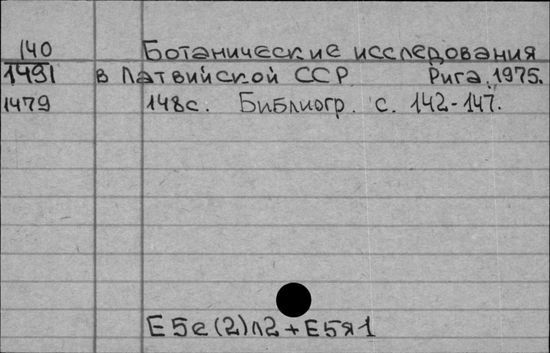 140
Ботанические исследования
1491 в Латвийской ССР. Рига, 1975.
1479 148с. Библиогр. с. 142-147.
Е5е(2)л2+Е5я1